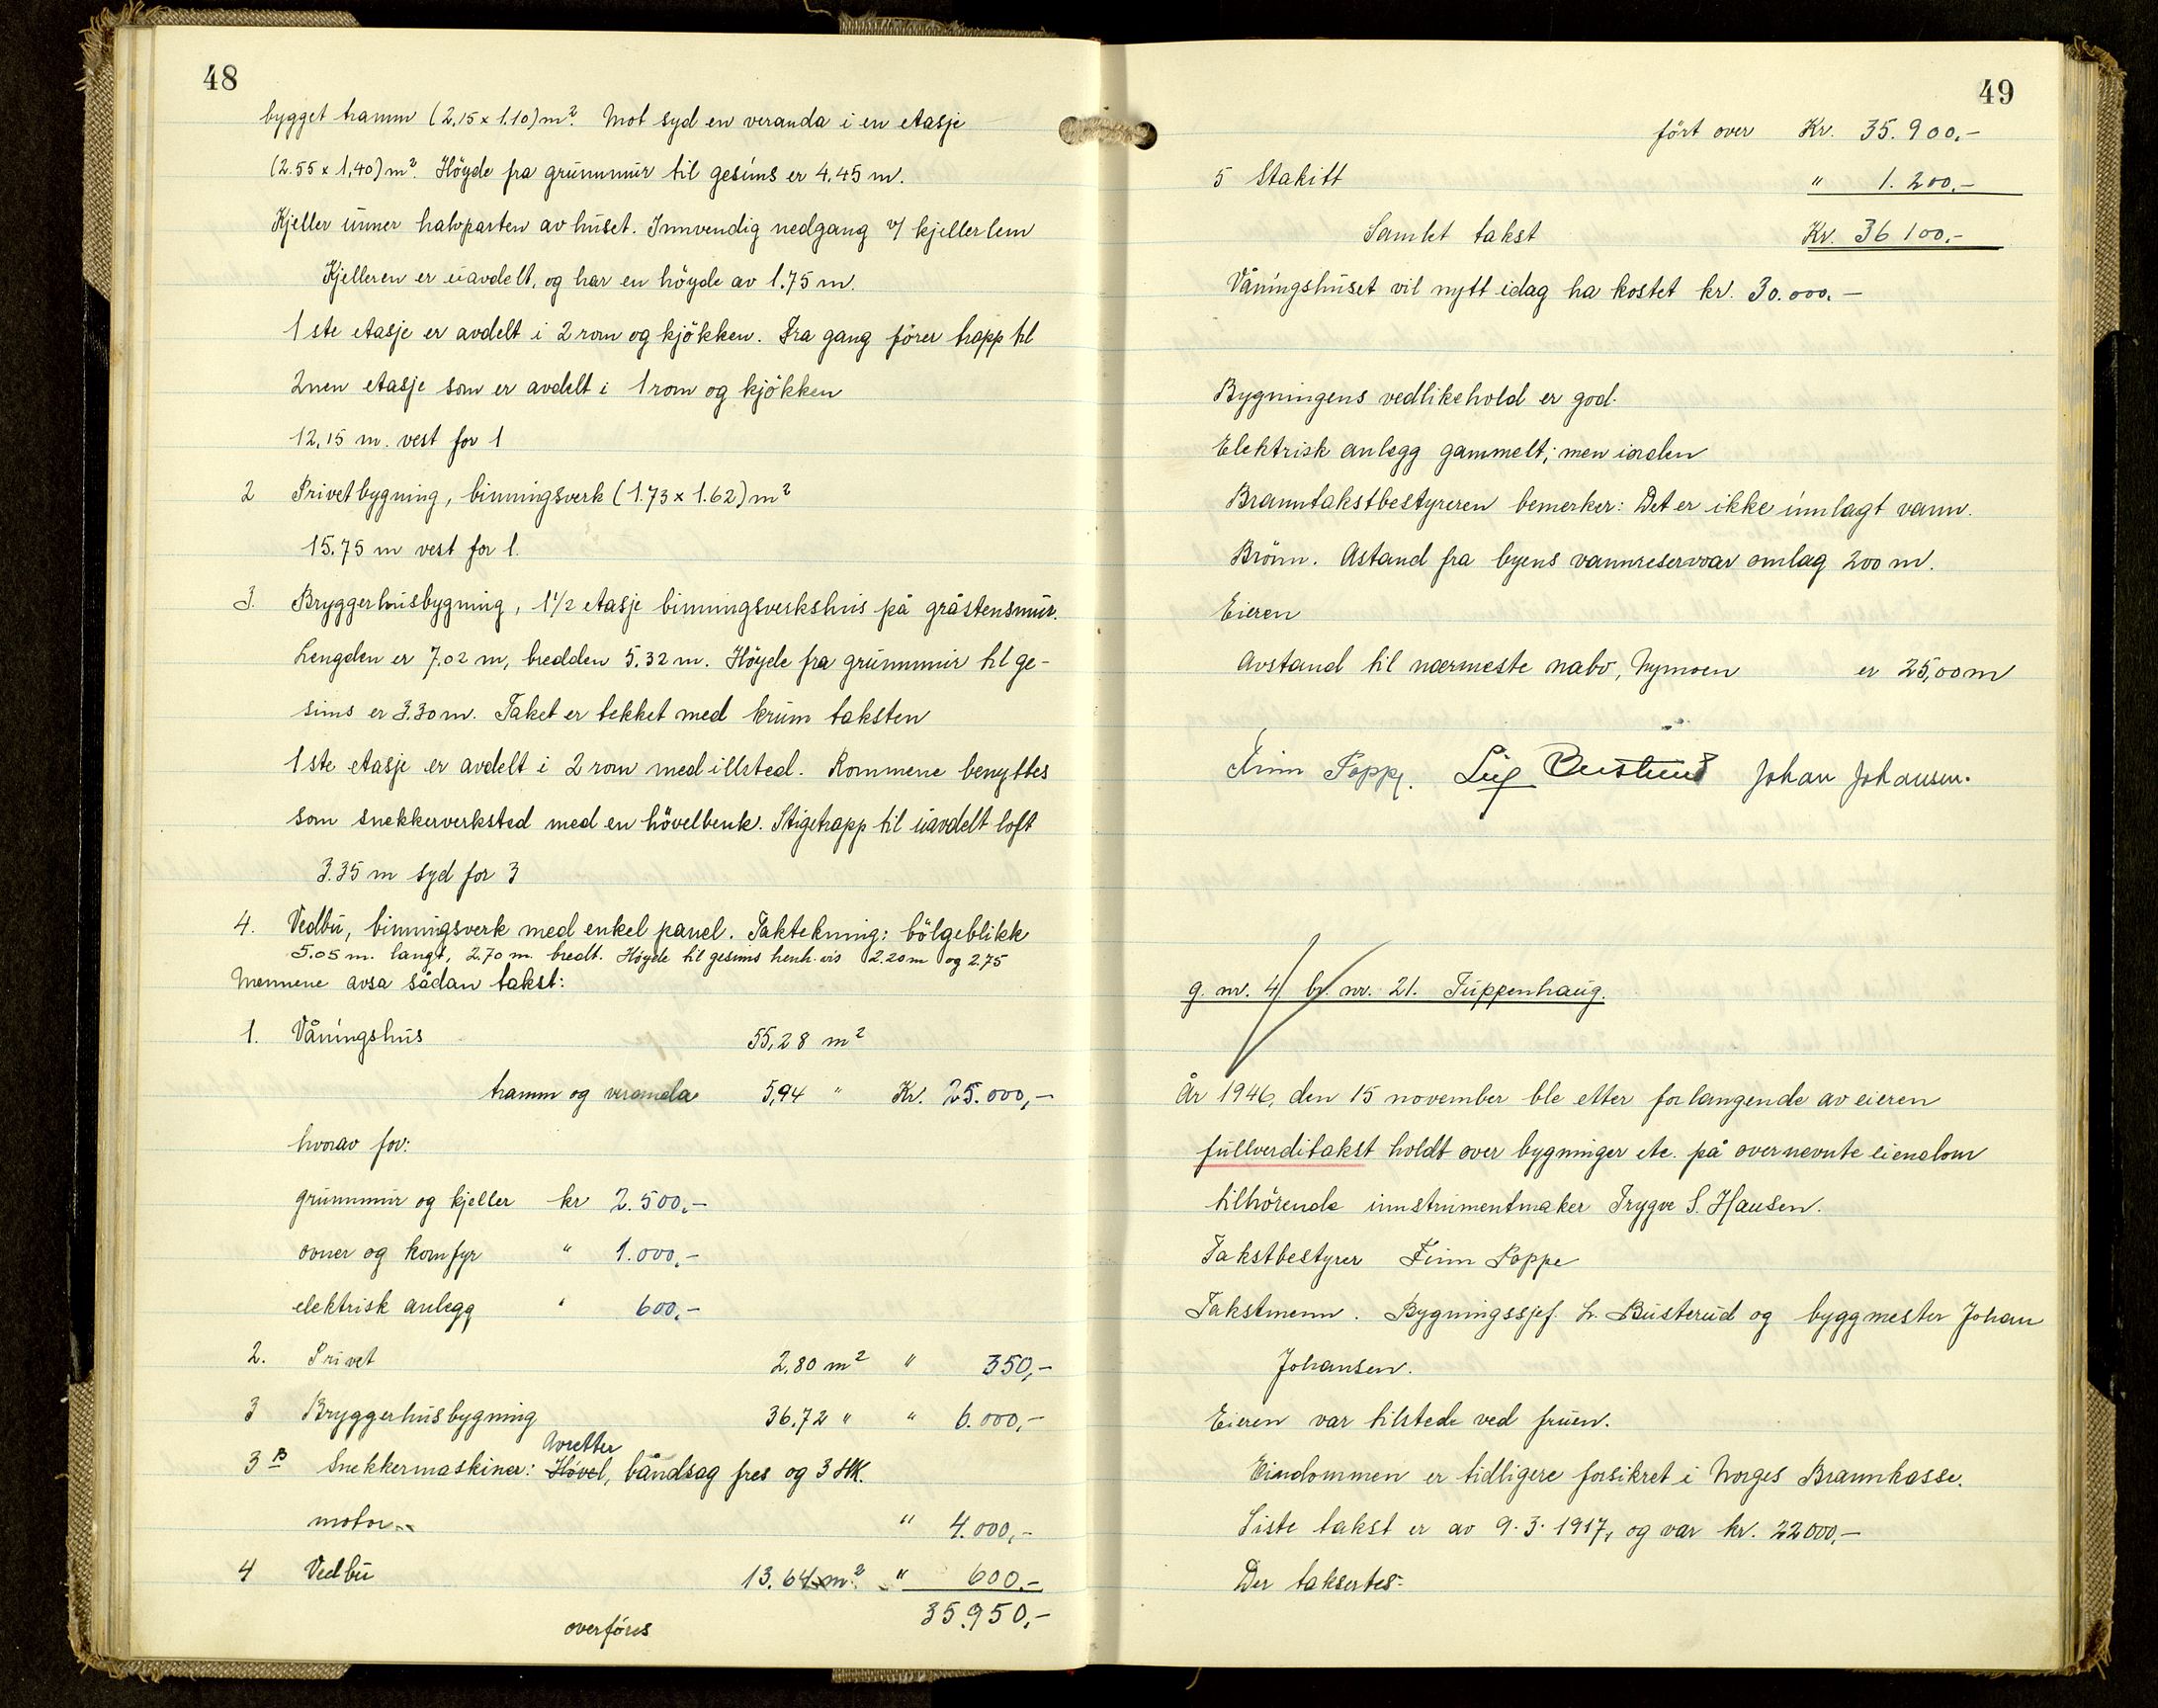 48
bygget tramm (2,15 x 1.10) m². Mot syd en veranda i en etasje
(2.55 x 1,40) m². Höyde fra grunnmur til gesims er 4.45 m.
Kjeller unner halvparten av huset. Innvendig nedgang v/ kjellerlem
Kjelleren er uavdelt, og har en höyde av 1.75 m.
1ste etasje er avdelt i 2 rom og kjökken. Fra gang förer trapp til
2nen etasje som er avdelt i 1 rom og kjökken
12,15 m. vest for 1
2 Privetbygning, binningsverk (1.73 x 1.62) m²
15.75 m vest for 1.
3. Bryggerhusbygning, 1 1/2 etasje binningsverkshus på gråstensmur.
Lengden er 7.02 m, bredden 5.32 m. Höyde fra grunnmur til ge-
sims er 3.30 m. Taket er tekket med krum taksten
1ste etasje er avdelt i 2 rom med illsted. Rommene benyttes
som snekkerverksted med en hövelbenk. Stigetrapp til uavdelt loft
3.35 m syd for 3
4. Vedbu, binningsverk med enkel panel. Taktekning: bölgeblikk
5.05 m. langt, 2.70 m. bredt. Höyde til gesims henh.vis 2.20 m og 2.75
Mennene avsa sådan takst:
1. Våningshus 55,28 m²
tramm og veranda 5,94 " Kr. 25.000,-
hvorav for:
grunnmur og kjeller kr 2.500,-
ovner og komfyr " 1.000,-
elektrisk anlegg " 600,-
2. Privet 2,80 m² " 350,-
3 Bryggerhusbygning 36,72 " " 6.000,-
Avretter
3 B Snekkermaskiner: Hövel, båndsag fres og 3 HK.
motor " 4.000,-
4 Vedbu 13.64 m² " 600.-
overföres 35.950,-
49
fört over Kr. 35.900,-
5 Stakitt " 1.200,-
Samlet takst Kr. 36 100,-
Våningshuset vil nytt idag ha kostet kr. 30.000.-
Bygningens vedlikehold er god.
Elektrisk anlegg gammelt; men iorden
Branntakstbestyreren bemerker: Det er ikke innlagt vann.
Brönn. Astand fra byens vannreservoar omlag 200 m.
Eieren
Avstand til nærmeste nabo, Nymoen er 25,00 m
Finn Poppe. Leif Busterud Johan Johansen.
g. nr. 4 br. nr. 21. Tuppenhaug.
År 1946, den 15 november ble etter forlangende av eieren
fullverditakst holdt over bygninger etc. på overnevnte eiendom
tilhörende innstrumentmaker Trygve S. Hansen.
Takstbestyrer Finn Poppe
Takstmenn. Bygningssjef. L. Busterud og byggmester Johan
Johansen.
Eieren var tilstede ved fruen.
Eindommen er tidligere forsikret i Norges Brannkasse.
Siste takst er av 9.3.1917, og var kr. 22000,-
Der taksertes: